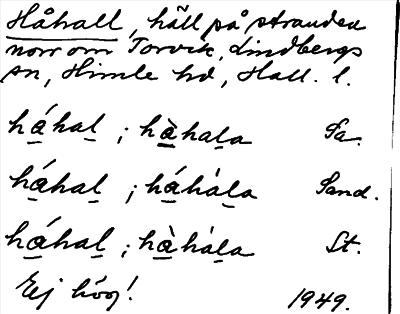 Håhall, häll på stranden
norr om Torvik, Lindbergs
sn, Himle hd, Hall. l.
há̱haḻ ; hà̱haḻa Sa.
há̱haḻ ; há̱hàḻa Sand.
há̱haḻ ; hà̱háḻa St.
Ej hög! 1949.